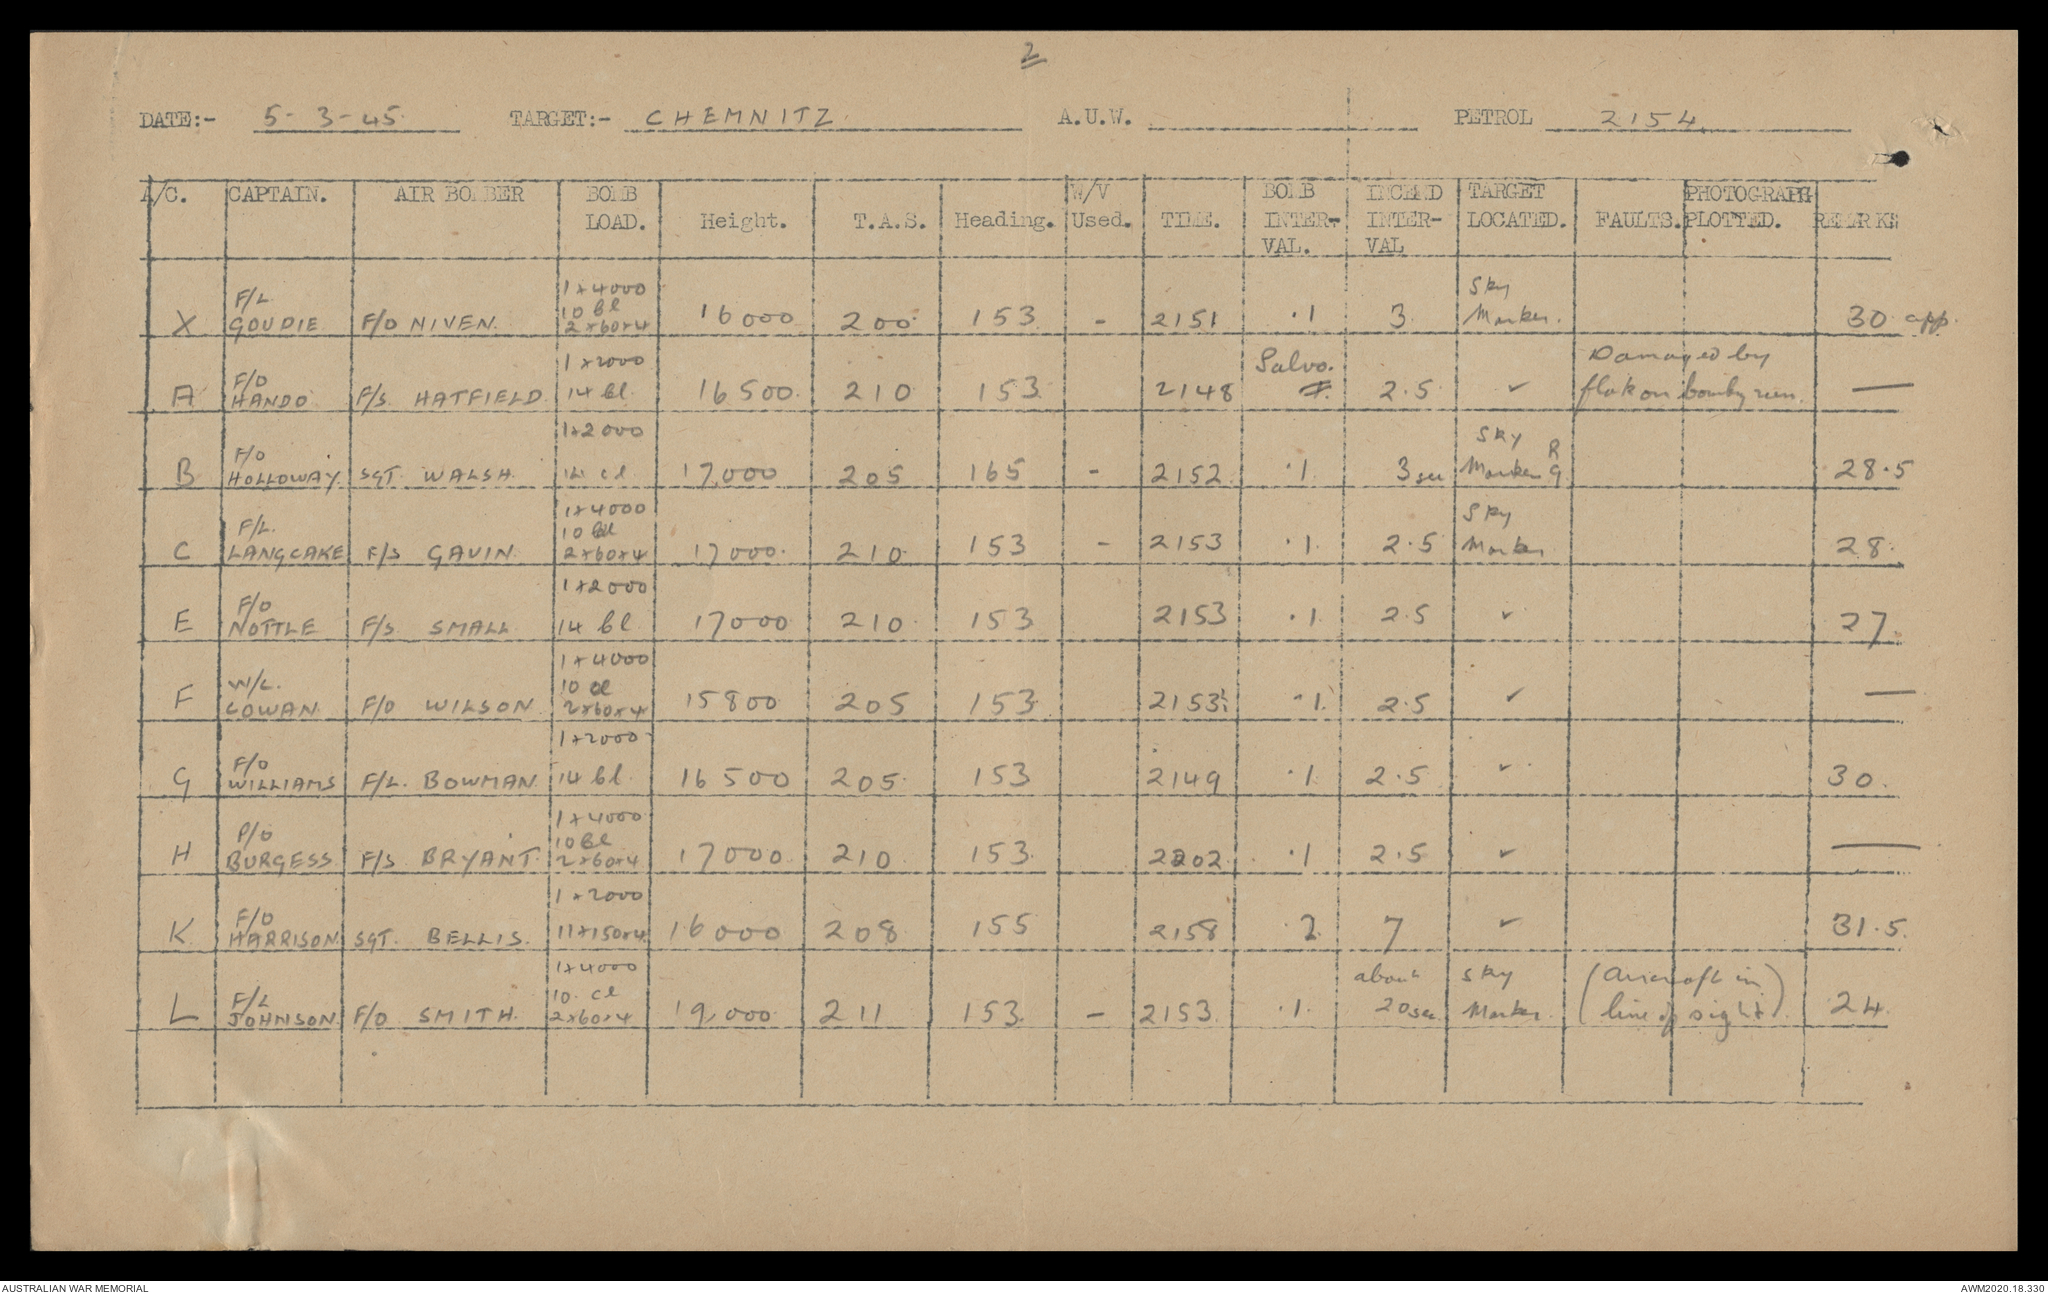 2
DATE:- 5-3-45. TARGET:- CHEMNITZ. A.U.W. PETROL 2154.
A/C. CAPTAIN. AIR BOMBER BOMB LOAD. Height. T.A.S. Heading. W/V Used. TIME. BOMB INTER-VAL. INCEND INTER-VAL TARGET LOCATED. FAULTS. PHOTOGRAPH PLOTTED. REMARKS
X F/L GOUDIE F/O NIVEN. 1x4000 10 bl 2x60x4 16000 200 153 - 2151 .1 3 Sky Marker. 30 app.
A F/O HANDO F/S HATFIELD 1x2000 14 bl 16500 210 153 2148 Salvo. 2.5 ✓ Damaged by flak on bomby run. —
B F/O HOLLOWAY SGT WALSH 1x2000 14 cl 17,000 205 165 - 2152 .1 3 sec Sky Marker R G 28.5
C F/L. LANGCAKE F/S GAVIN. 1x4000 10 bl 2x60x4 17000. 210. 153 - 2153 .1. 2.5 Sky Marker 28.
E F/O NOTTLE F/S SMALL 1x2000 14 bl 17000 210. 153 2153 .1. 2.5 ✓ 27.
F W/C. COWAN F/O WILSON 1x4000 10 cl 2x60x4 15800 205 153 2153½ .1. 2.5 ✓ —
G F/O WILLIAMS F/L. BOWMAN 1x2000 14 bl. 16500 205. 153 2149 .1 2.5 ✓ 30.
H P/O BURGESS F/S BRYANT. 1x4000 10 bl 2x60x4 17000. 210 153. 2202 .1 2.5 ✓ —
K F/O HARRISON SGT. BELLIS. 1x2000 11x150x4 16000 208 155 2158 .2 7 ✓ 31.5.
L F/L JOHNSON F/O SMITH. 1x4000 10. cl 2x60x4 19,000 211 153. - 2153. .1. about 20 sec Sky Marker. (Aircraft in line of sight). 24.
AUSTRALIAN WAR MEMORIAL AWM2020.18.330